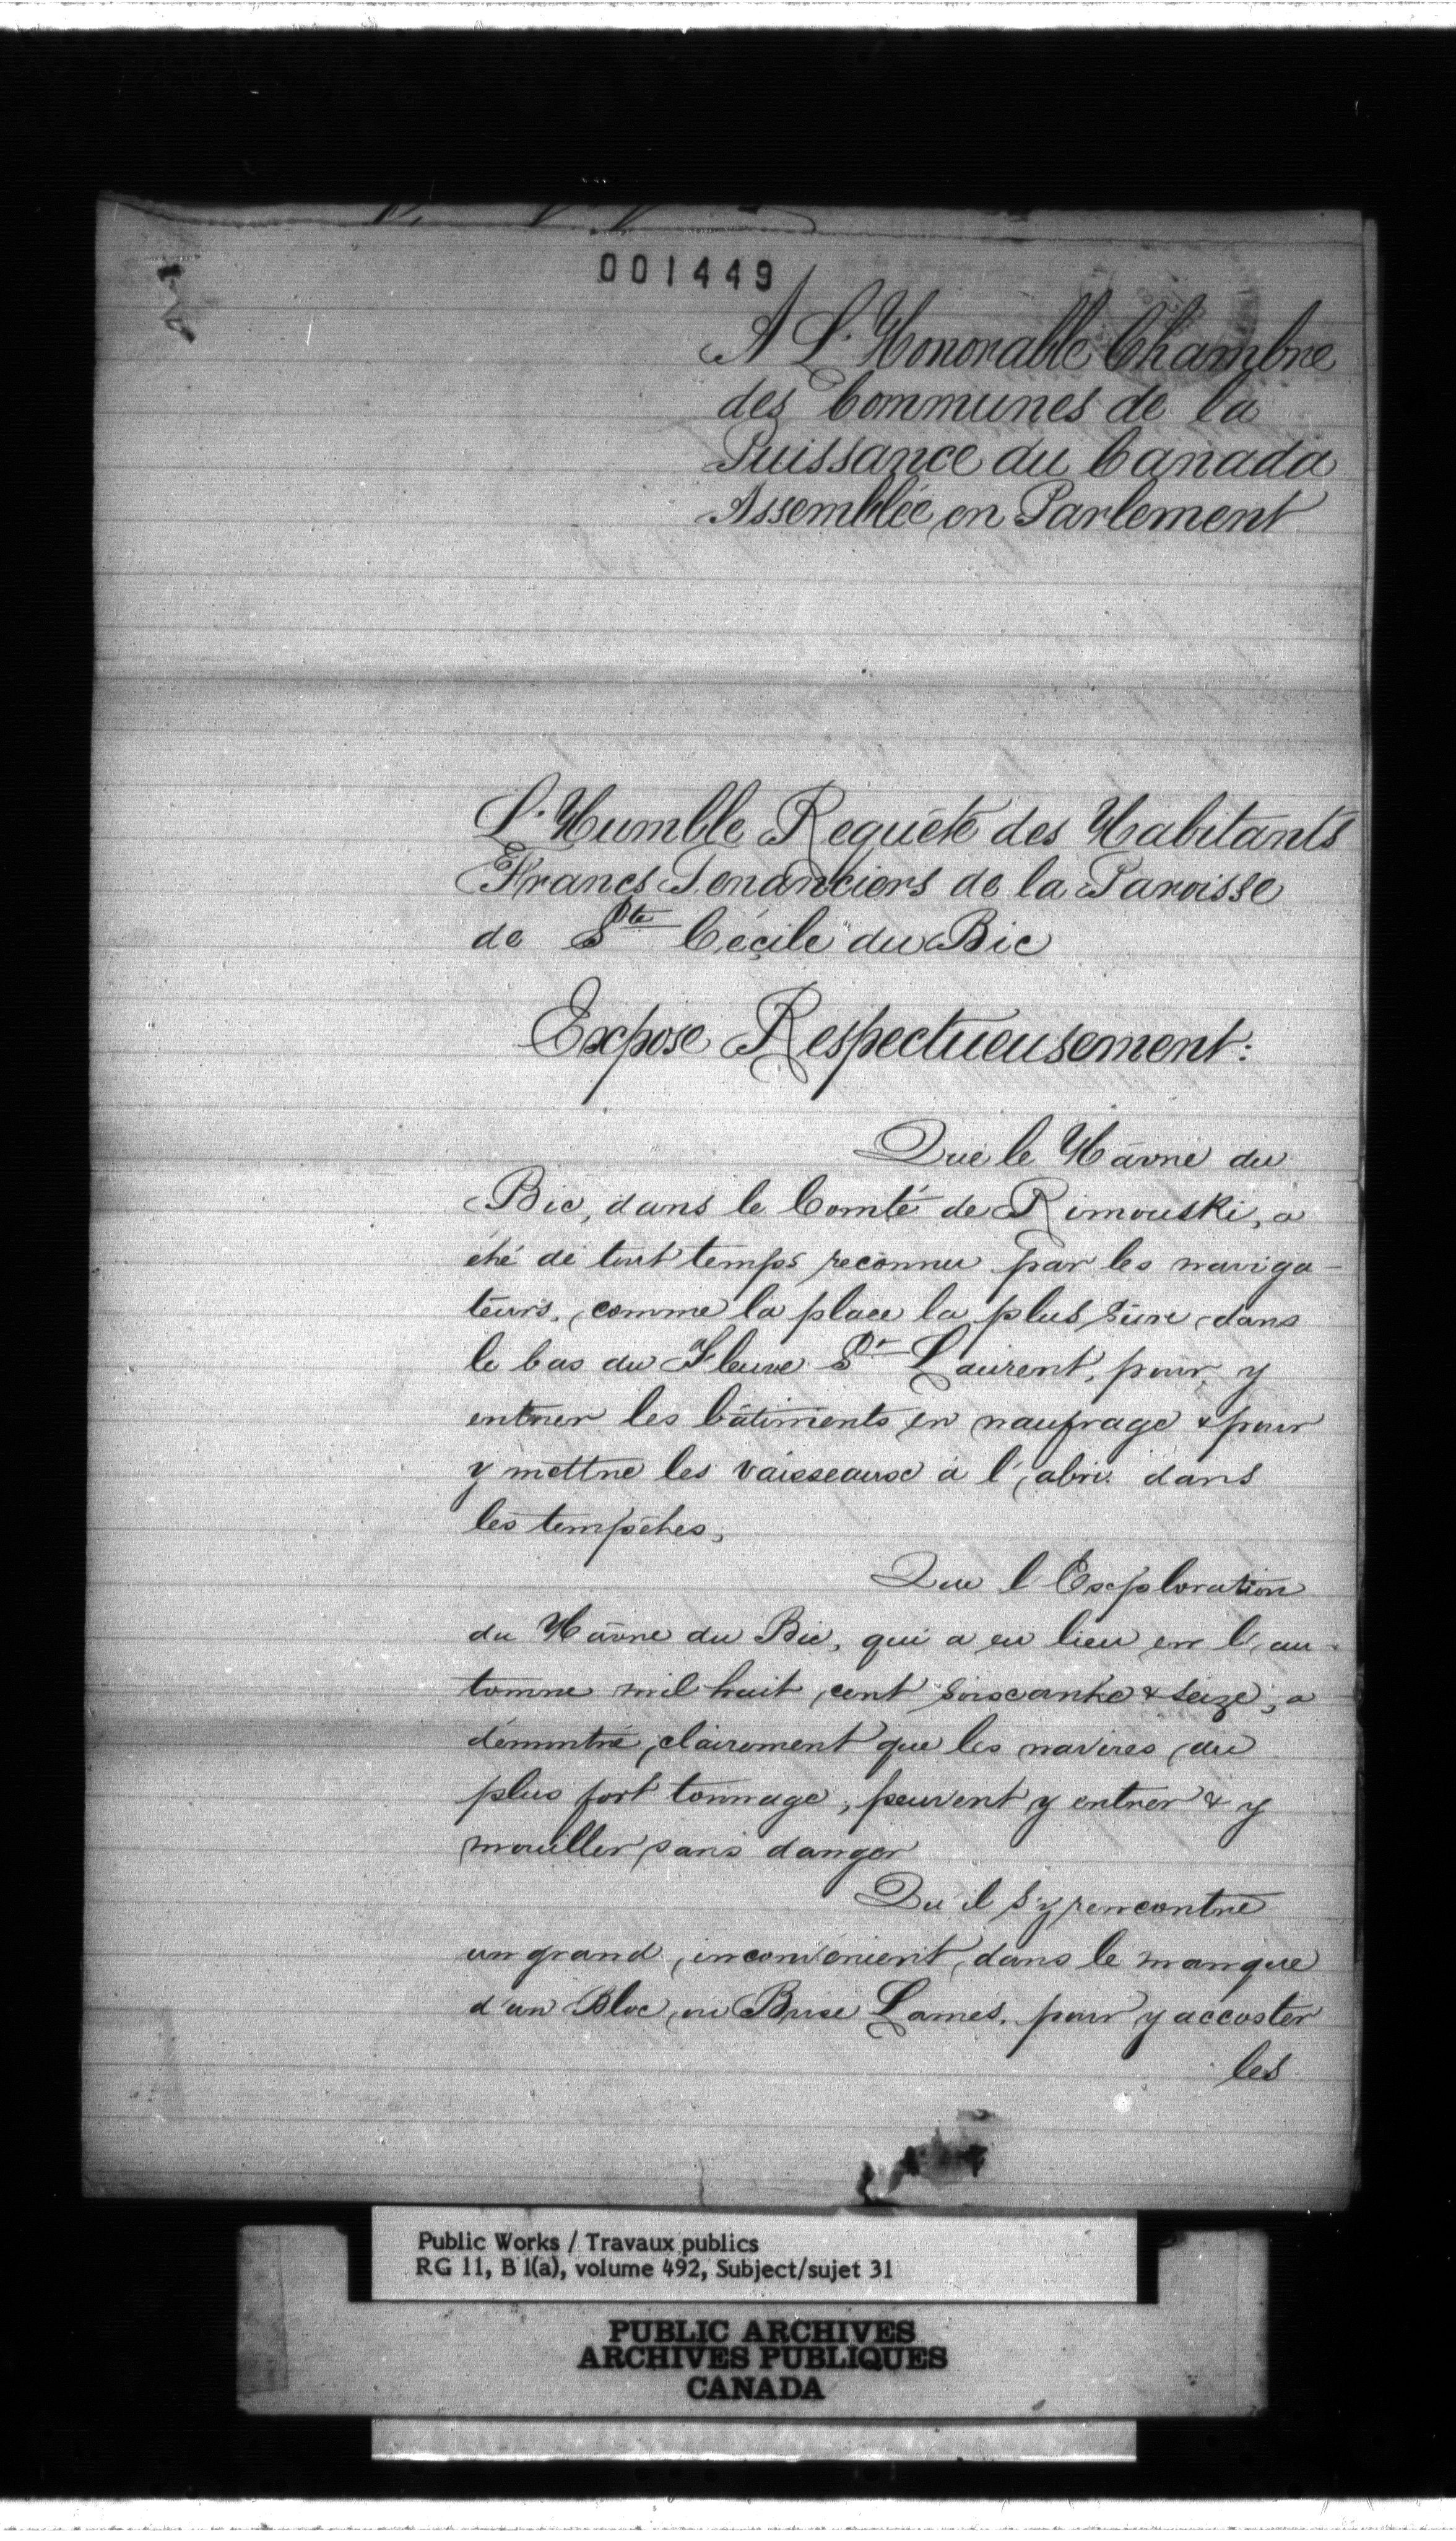 001449
A L'Honorable Chambre
des Communes de la
Puissance du Canada
Assemblée en Parlement
L'Humble Requête des Habitants
Francs Tenanciers de la Paroisse
de Ste Cécile du Bic
Expose Respectueusement:
Que le Hâvre du
Bic, dans le Comté de Rimouski, a
été de tout temps reconnu par les naviga-
teurs, comme la place la plus sûre dans
le bas du Fleuve St Laurent, pour y
entrer les bâtiments en naufrage & pour
y mettre les vaisseaux à l'abri dans
les tempêtes,
Que l'Exploration
du Hâvre du Bic, qui a eu lieu en l'au-
tomne mil huit cent soixante & seize, a
démontré clairement que les navires du
plus fort tonnage, peuvent y entrer & y
mouiller sans danger
Qu'il s'y rencontre
un grand inconvénient dans le manque
d'un Bloc ou Brise Lames, pour y accoster
les
Public Works / Travaux publics
RG 11, B 1(a), volume 492, Subject/sujet 31
PUBLIC ARCHIVES
ARCHIVES PUBLIQUES
CANADA